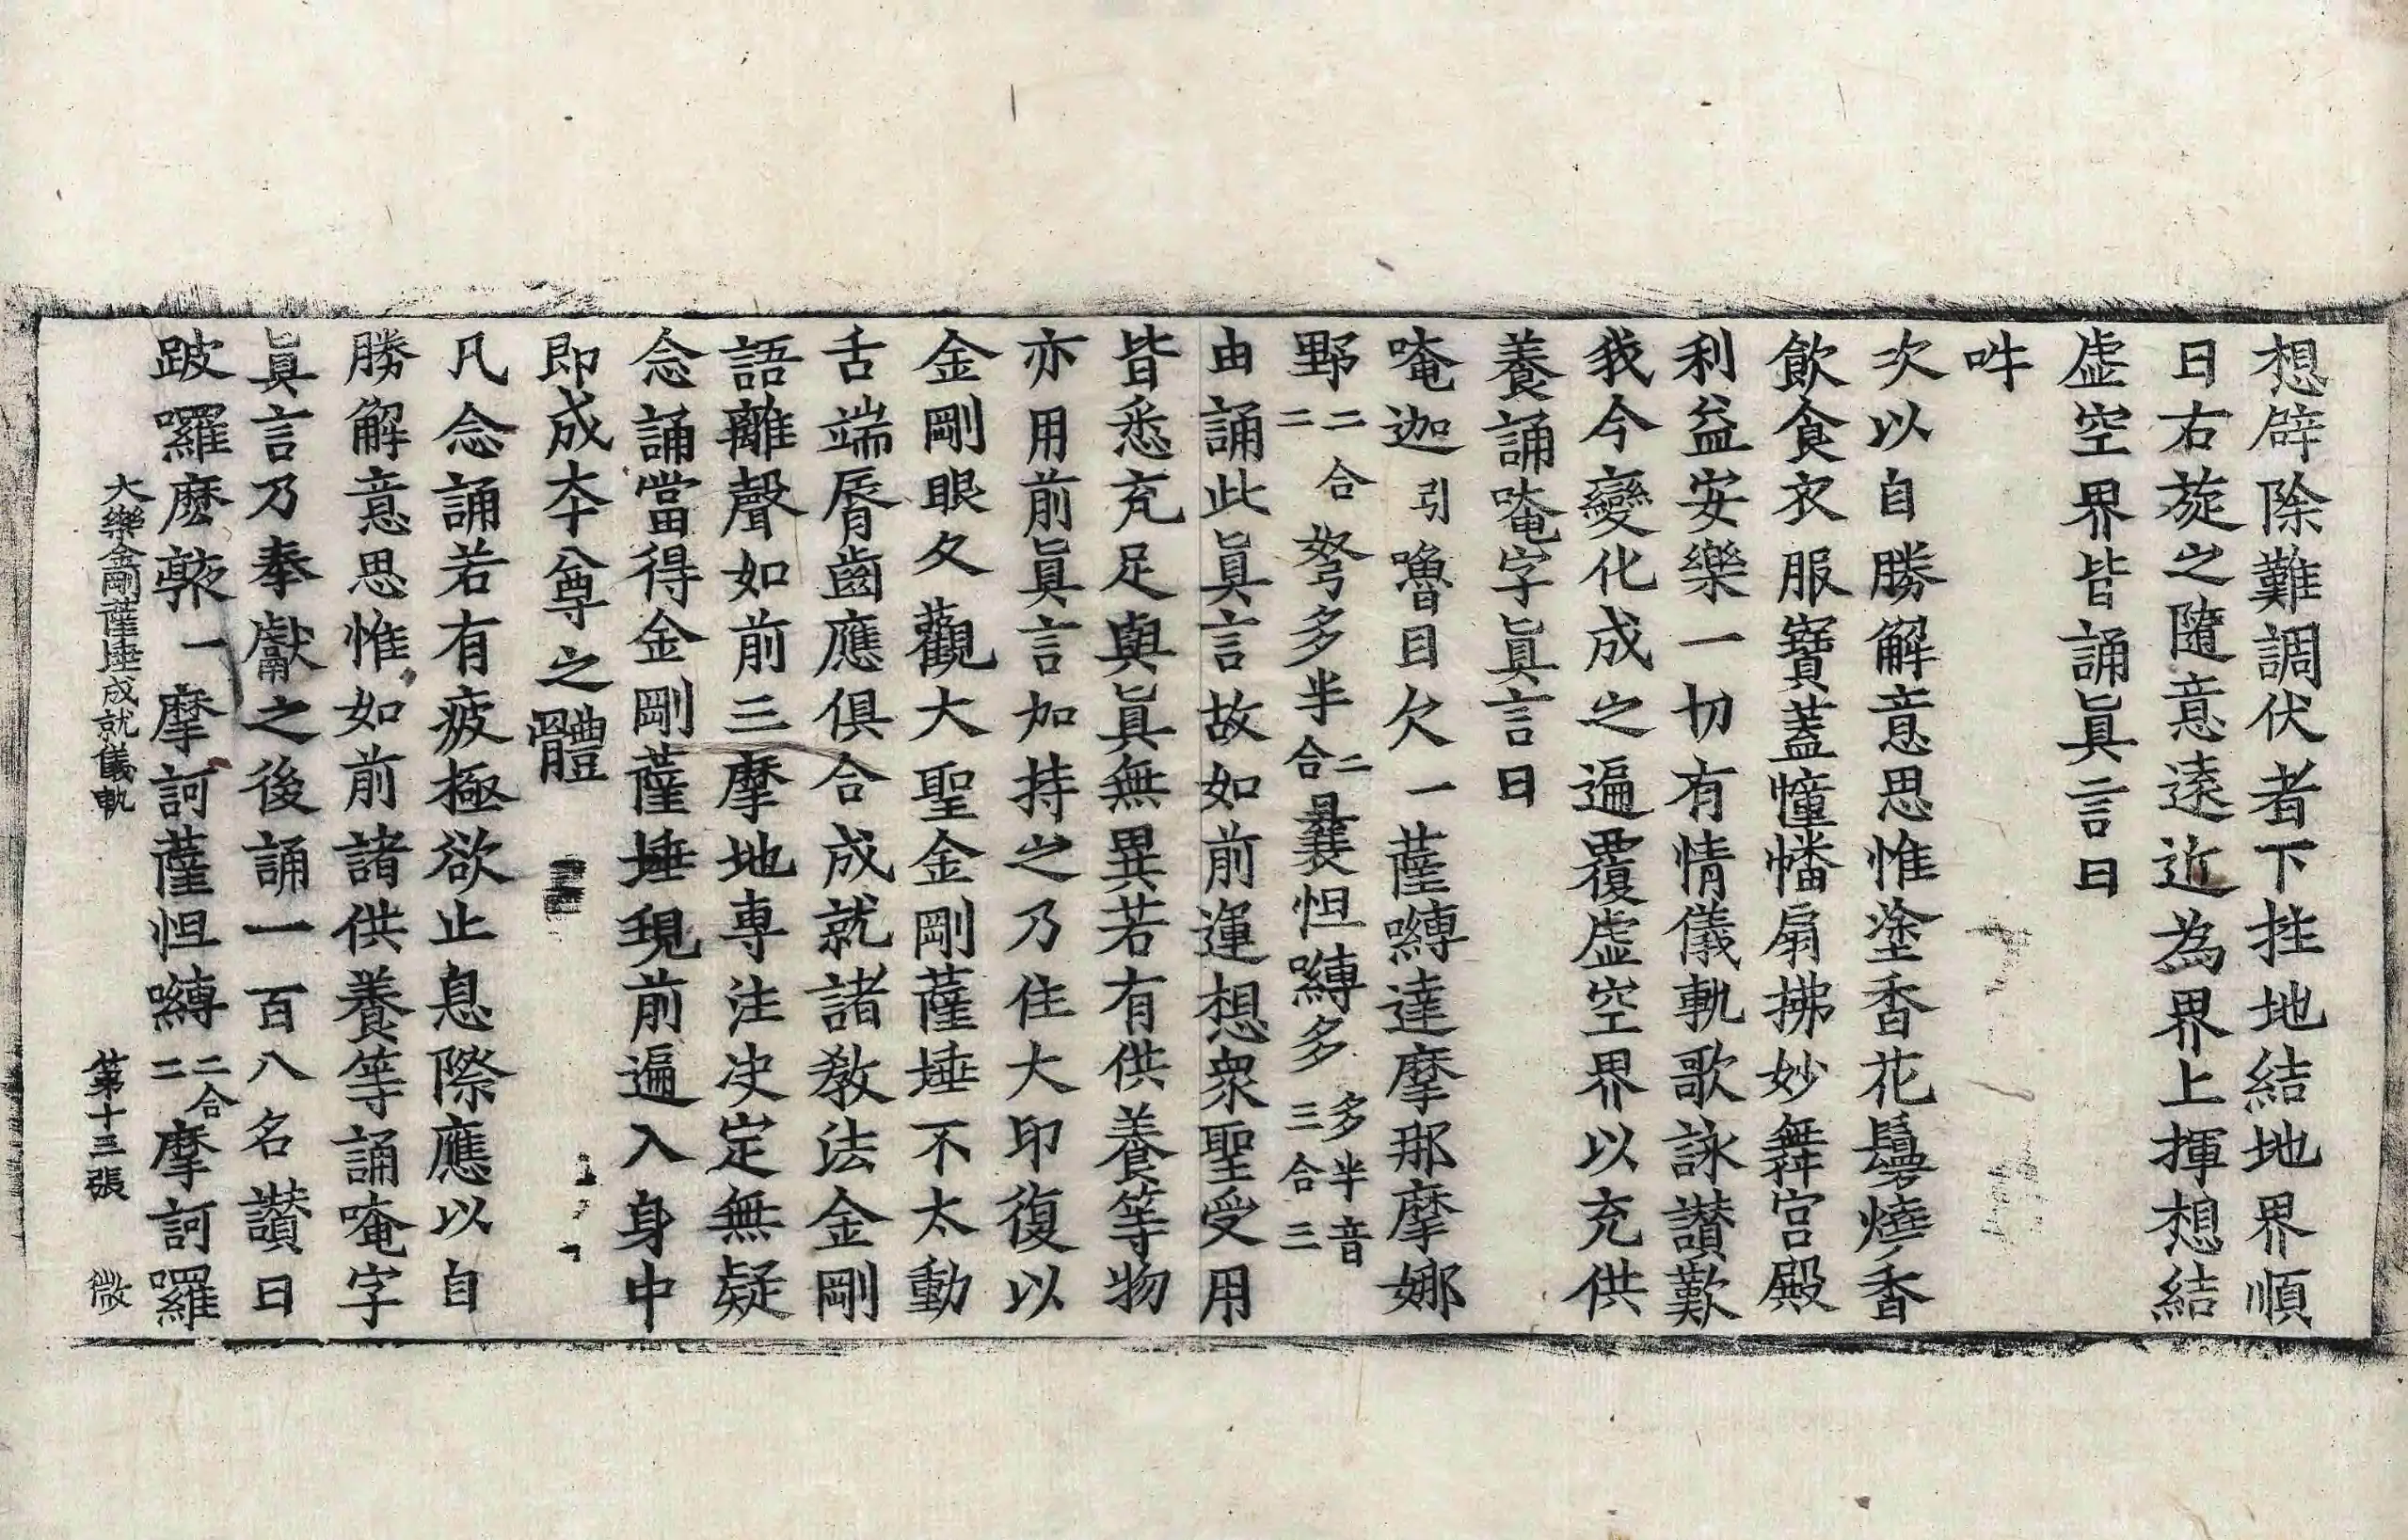 想辟除難調伏者下挂地結地界順
日右旋之隨意遠近為界上揮想結
虛空界皆誦眞言曰
吽
次以自勝解意思惟塗香花鬘燒香
飲食衣服寶蓋幢幡扇拂妙舞宮殿
利益安樂一切有情儀軌歌詠讃歎
我今變化成之遍覆虛空界以充供
養誦唵字眞言曰
唵迦引嚕目欠一薩嚩達摩那摩娜
野二合二弩多半二合曩怛嚩多多半音三合三
由誦此眞言故如前運想衆聖受用
皆悉充足與眞無異若有供養等物
亦用前眞言加持之乃住大印復以
金剛眼久觀大聖金剛薩埵不太動
舌端脣齒應俱合成就諸教法金剛
語離聲如前三摩地專注决定無疑
念誦當得金剛薩埵現前遍入身中
即成本尊之體
凡念誦若有疲極欲止息際應以自
勝解意思惟如前諸供養等誦唵字
眞言乃奉獻之後誦一百八名讃曰
跛囉麽𭌆一摩訶薩怛嚩二合二摩訶囉
大樂金剛薩埵成就儀軌 第十三張 微